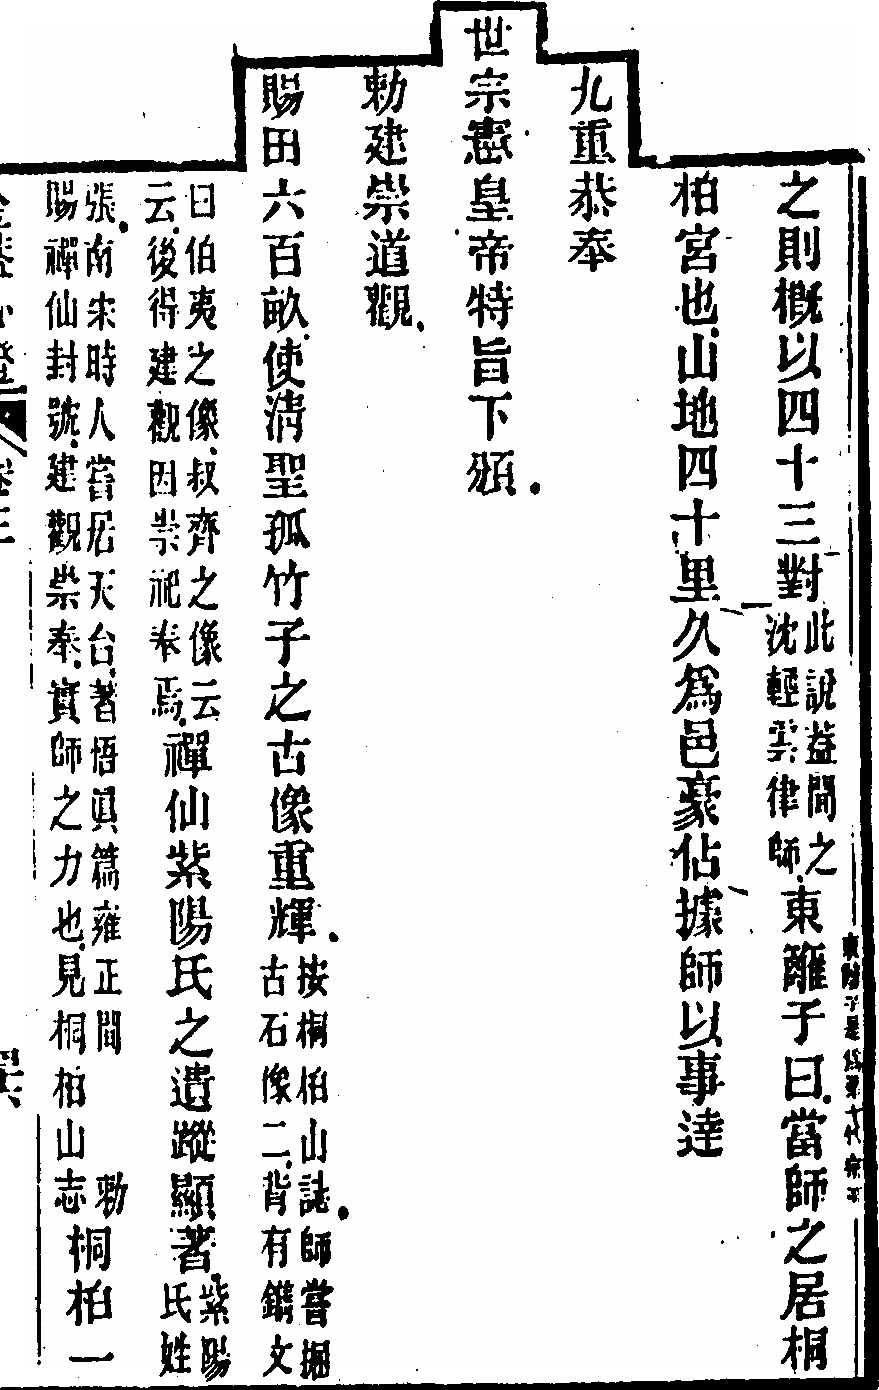 之則概以四十三對此說葢聞之沈輕雲律師東離子曰當師之居桐
柏宮也山地四十里久為邑豪佔據師以事達
九重恭奉
世宗憲皇帝特旨下頒
勅建崇道觀
賜田六百畝使清聖孤竹子之古像重輝按桐柏山誌師嘗掘古石像二背有鐫文
曰伯夷之像叔齊之像云云後得建觀因崇祀奉焉禪仙紫陽氏之遺蹤顯著紫陽氏姓
張南宋時人嘗居天台著悟眞篇雍正間勅賜禪仙封號建觀崇奉實師之力也見桐柏山志桐柏一